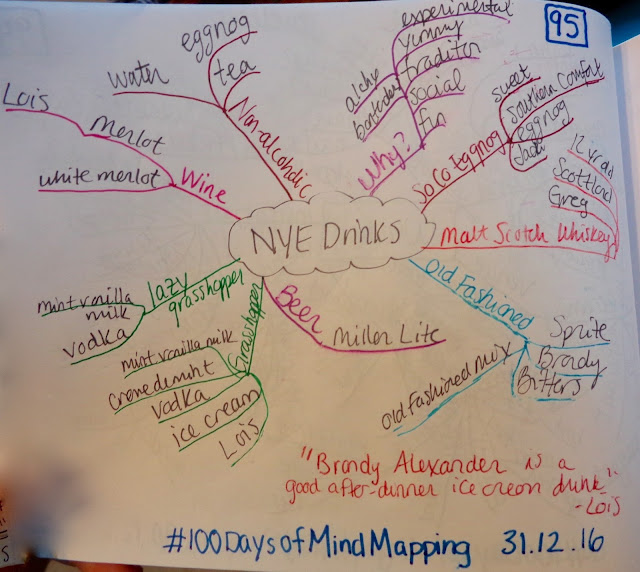 95
NYE Drinks
Non-alcoholic
eggnog
tea
water
Why?
experimental
yummy
tradition
social
fun
alchy
bartenders
SoCo Eggnog
sweet
Southern Comfort
eggnog
Malt Scotch Whiskey
12 yr old
Scotland
Greg
Old Fashioned
Sprite
Brandy
Bitters
Old Fashioned mix
Beer
Miller Lite
Grasshopper
mint vanilla milk
creme de mint
vodka
ice cream
Lois
lazy
grasshopper
mint vanilla
milk
vodka
Wine
Merlot
Lois
white merlot
"Brandy Alexander is a
good after-dinner ice cream drink"
-Lois
#100DaysofMindMapping 31.12.16